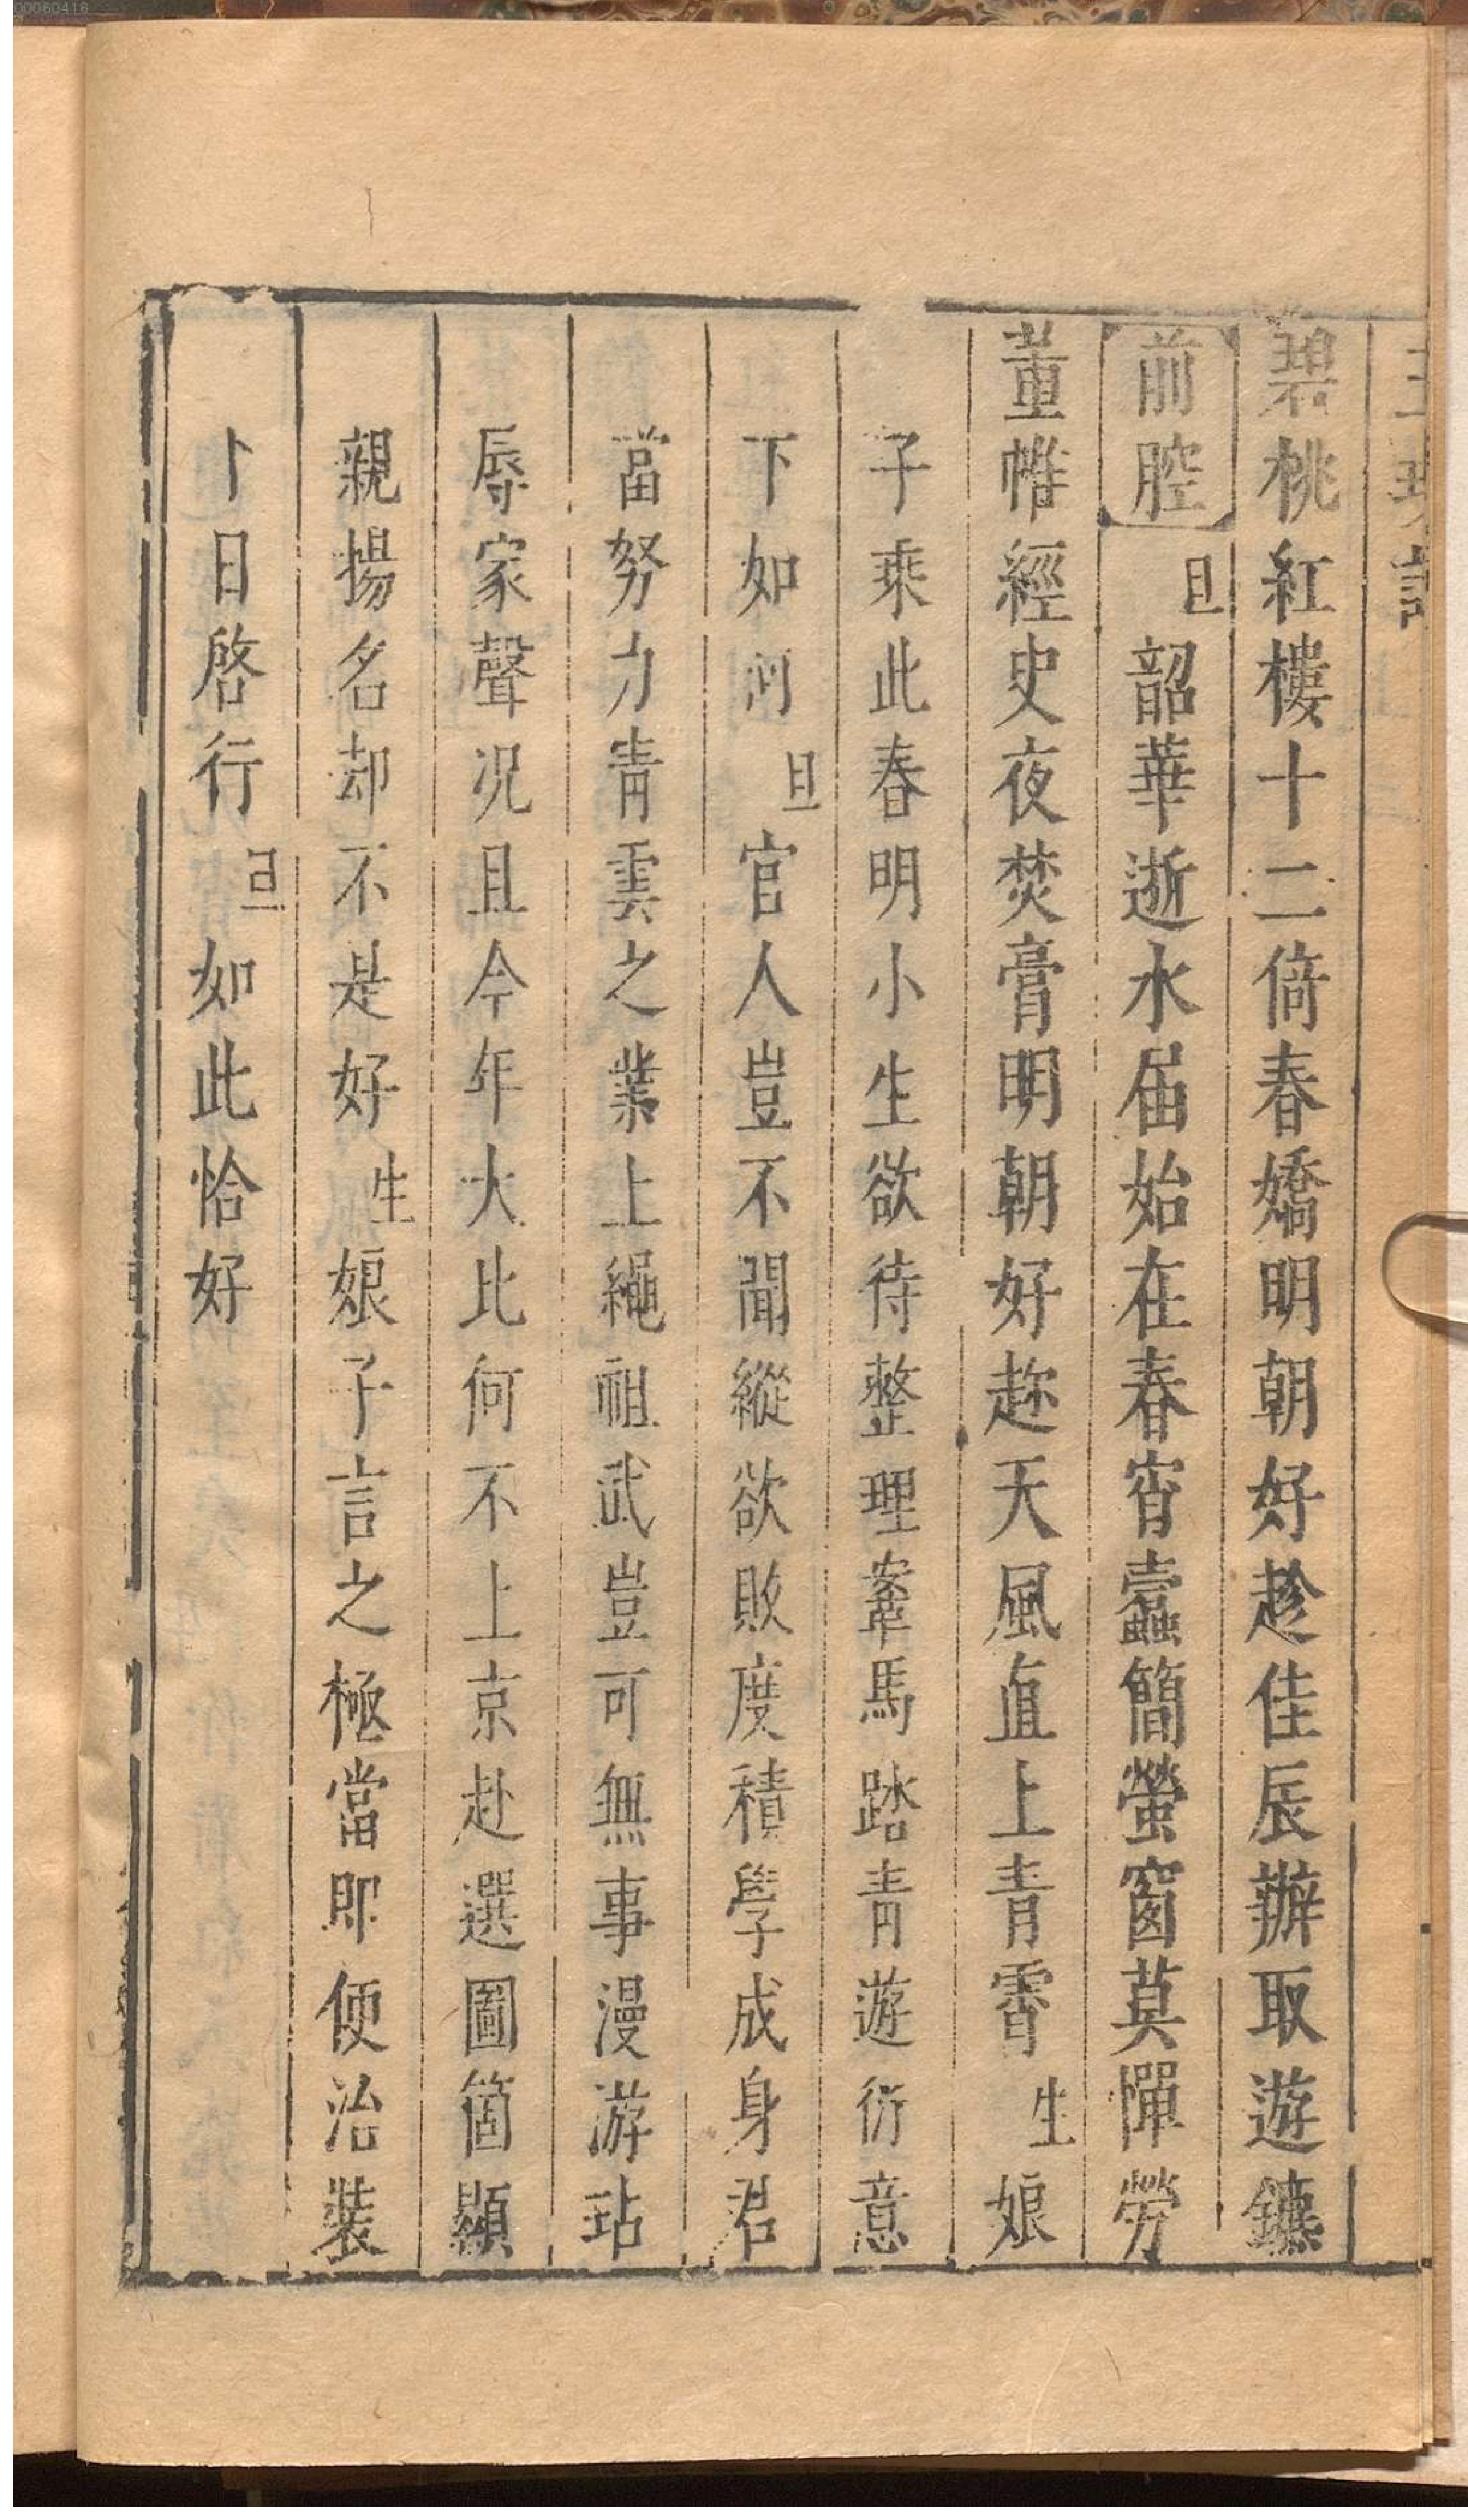 碧桃紅樓十二倚春嬌明朝好趁佳辰辦取遊鑣
前腔旦韶華逝水届始在春宵蠹簡螢窗莫憚勞
董帷經史夜焚膏明朝好趂天風直上青霄生娘
子乘此春明小生欲待整理鞍馬踏青遊衍意
下如何旦官人豈不聞縱欲敗度積學成身君
當努力青雲之業上繩祖武豈可無事漫游玷
辱家聲况且今年大比何不上京赴選圖箇顯
親揚名却不是好生娘子言之極當即便治裝
卜日啓行旦如此恰好
00060418